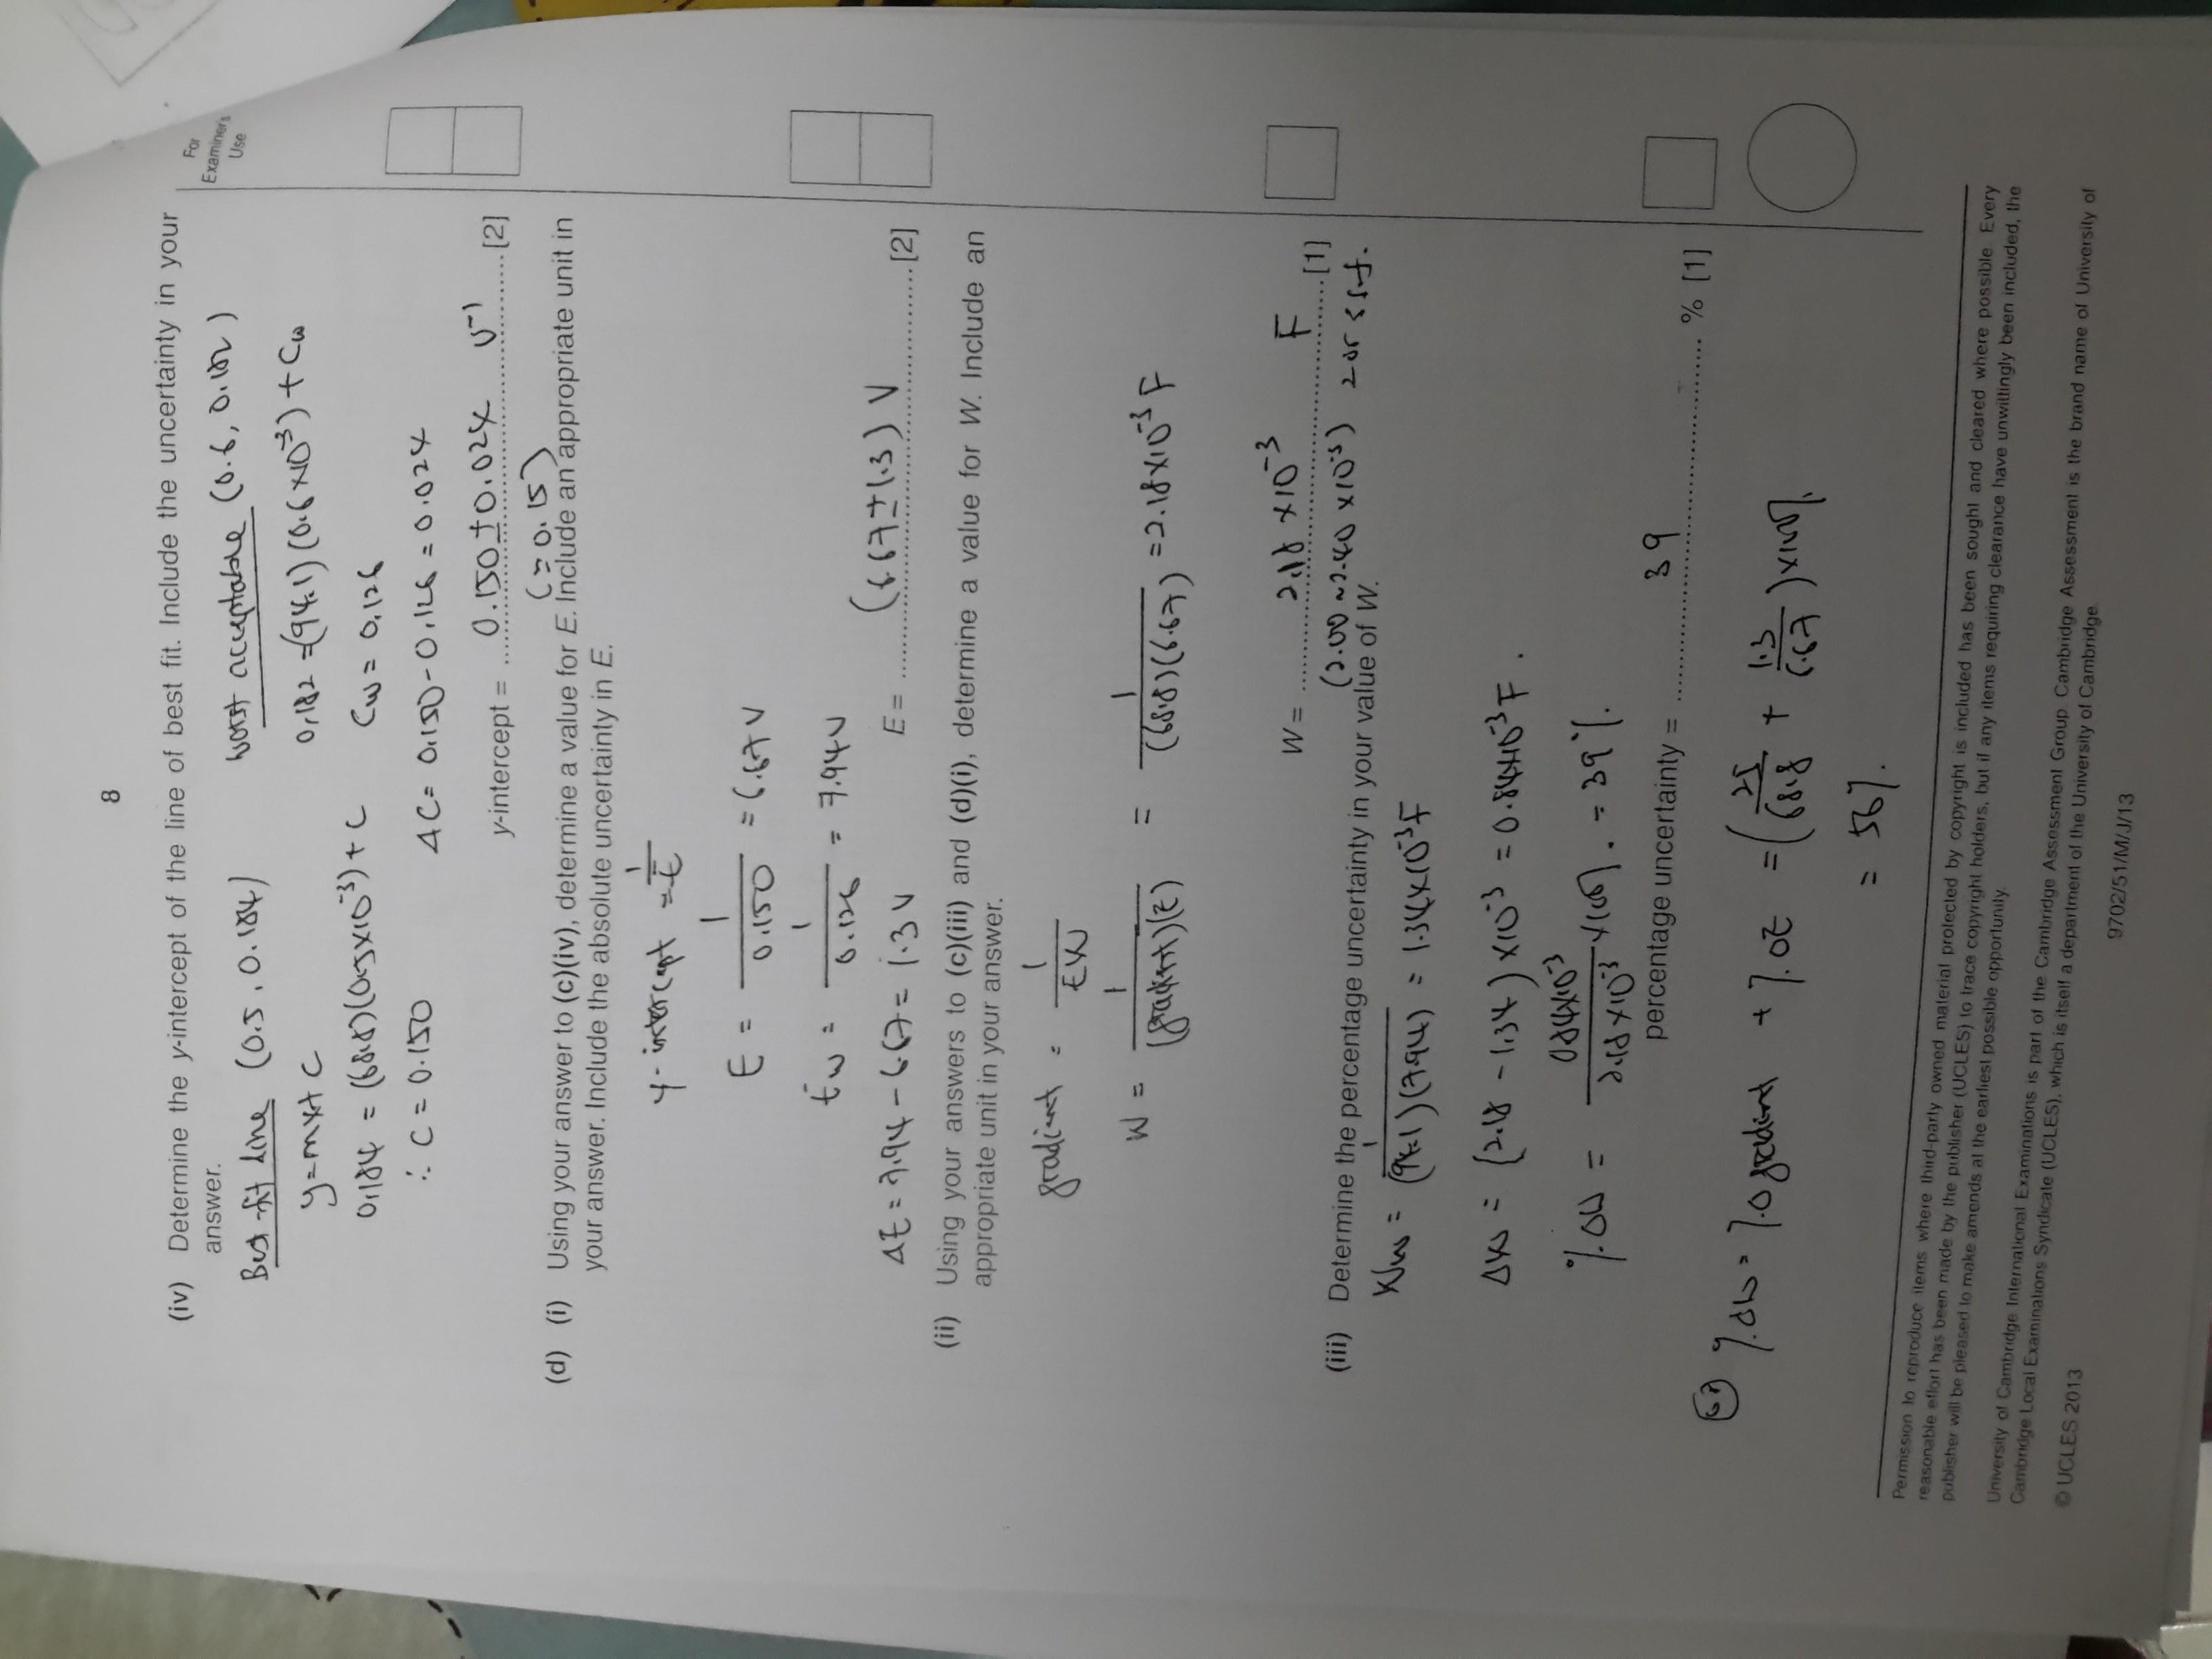 8
(iv) Determine the y-intercept of the line of best fit. Include the uncertainty in your
answer.
For
Examiner's
Use
Best-fit line (0.5, 0.184)
worst acceptable (0.6, 0.182)
y=mx+c
0.182 =(94.1)(0.6×10⁻³)+Cw
0.184 = (68.8)(0.5×10⁻³)+c
Cw = 0.126
∴ c = 0.150
ΔC= 0.150-0.126 = 0.024
y-intercept = 0.150±0.024 V⁻¹ [2]
(≈0.15)
(d) (i) Using your answer to (c)(iv), determine a value for E. Include an appropriate unit in
your answer. Include the absolute uncertainty in E.
y-intercept = 1/E
E = 1/0.150 = 6.67V
Ew = 1/0.126 = 7.94V
ΔE = 7.94-6.67= 1.3V
E = (6.67±1.3) V [2]
(ii) Using your answers to (c)(iii) and (d)(i), determine a value for W. Include an
appropriate unit in your answer.
gradient = 1/EW
W = 1/(gradient)(E) = 1/(68.8)(6.67) =2.18×10⁻³ F
W = 2.18 ×10⁻³ F [1]
(2.00~2.40 ×10⁻³) 2 or 3 s.f.
(iii) Determine the percentage uncertainty in your value of W.
Ww = 1/(94.1)(7.94) = 1.34×10⁻³F
ΔW = (2.18 -1.34)×10⁻³ = 0.84×10⁻³F.
%ΔW = 0.84×10⁻³/2.18×10⁻³ ×100%. = 39%.
percentage uncertainty = 39 % [1]
%ΔW = %Δgradient + %ΔE = (25/68.8 + 1.3/6.67)×100%
= 56%.
Permission to reproduce items where third-party owned material protected by copyright is included has been sought and cleared where possible. Every
reasonable effort has been made by the publisher (UCLES) to trace copyright holders, but if any items requiring clearance have unwittingly been included, the
publisher will be pleased to make amends at the earliest possible opportunity.
University of Cambridge International Examinations is part of the Cambridge Assessment Group. Cambridge Assessment is the brand name of University of
Cambridge Local Examinations Syndicate (UCLES), which is itself a department of the University of Cambridge.
© UCLES 2013
9702/51/M/J/13